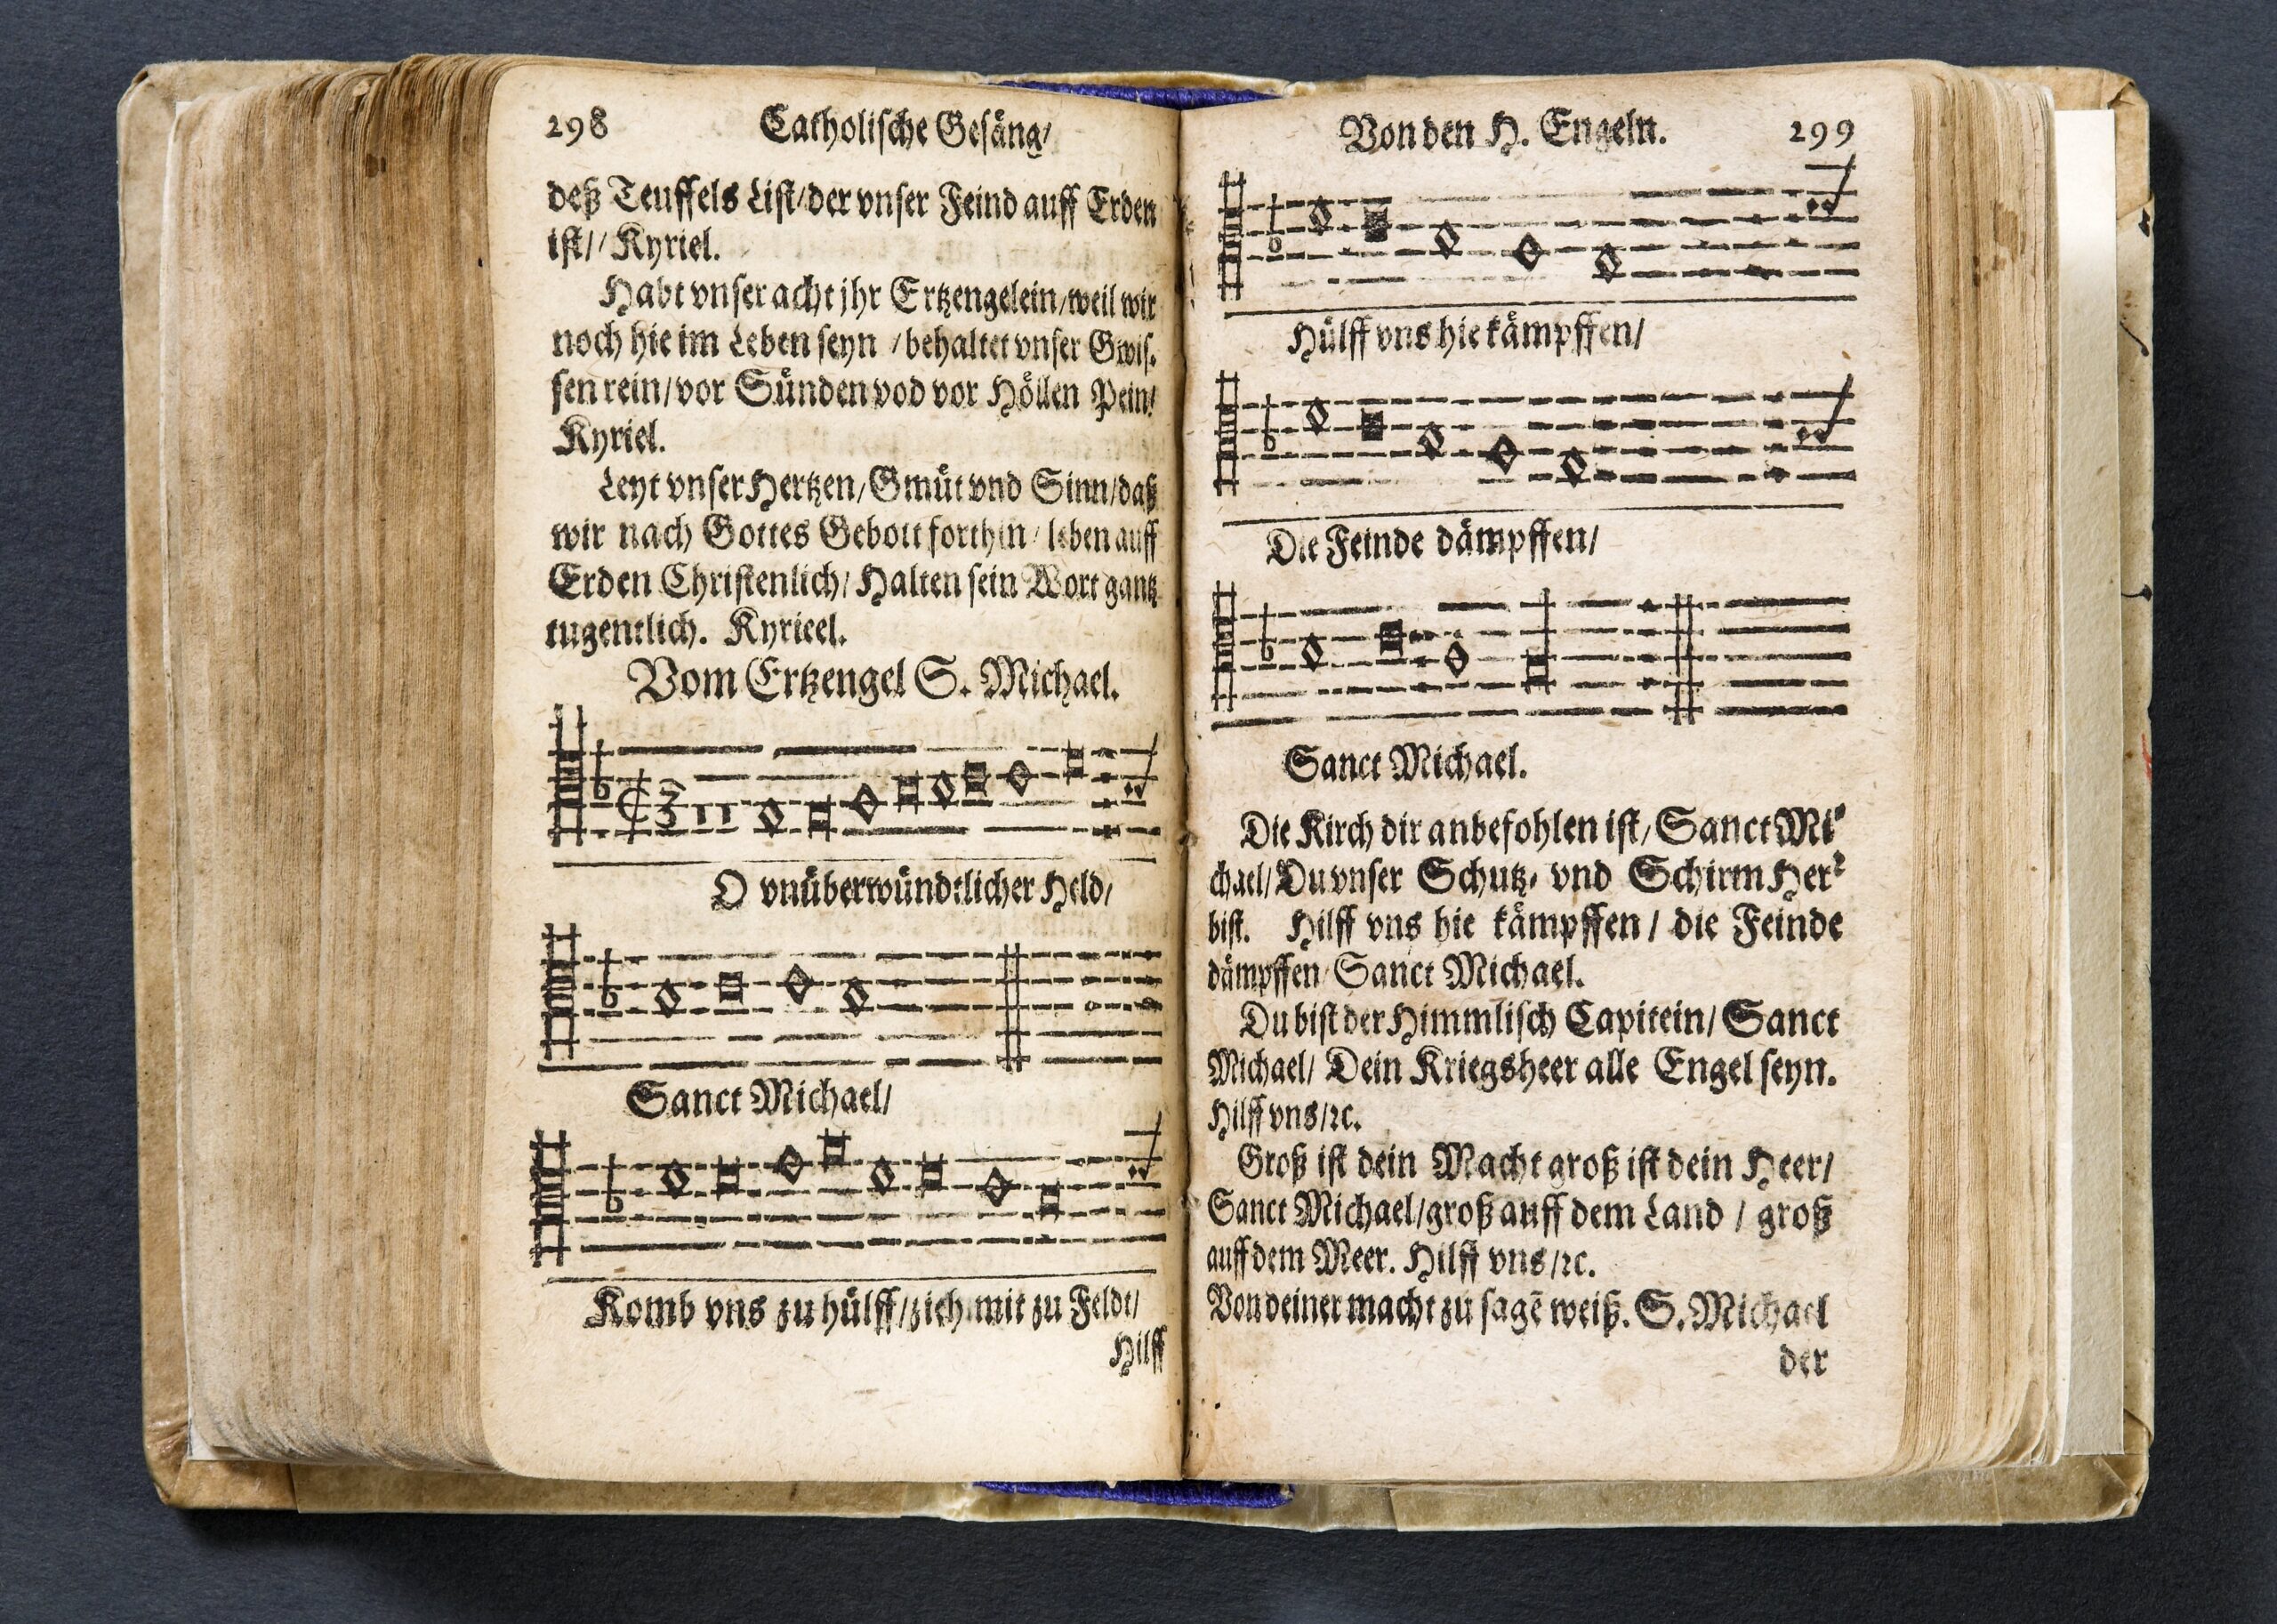 298 Catholische Gesäng/
deß Teuffels List/der vnser Feind auff Erden
ist// Kyriel.
Habt vnser acht jhr Ertzengelein/weil wir
noch hie im Leben seyn /behaltet vnser Gwis-
sen rein/vor Sünden vod vor Höllen Pein/
Kyriel.
Leyt vnser Hertzen/Gmüt vnd Sinn/daß
wir nach Gottes Gebott forthin/ leben auff
Erden Christenlich/ Halten sein Wort gantz
tugentlich. Kyrieel.
Vom Ertzengel S. Michael.
O vnüberwündtlicher Held/
Sanct Michael/
Komb vns zu hülff/zieh mit zu Feldt/
Hilff
Von den H. Engeln. 299
Hülff vns hie kämpffen/
Die Feinde dämpffen/
Sanct Michael.
Die Kirch dir anbefohlen ist/Sanct Mi-
chael/Du vnser Schutz- vnd Schirm Her-
bist. Hilff vns hie kämpffen/ die Feinde
dämpffen/Sanct Michael.
Du bist der Himmlisch Capitein/Sanct
Michael/ Dein Kriegsheer alle Engel seyn.
Hilff vns/ꝛc.
Groß ist dein Macht groß ist dein Heer/
Sanct Michael/groß auff dem Land / groß
auff dem Meer. Hilff vns/ꝛc.
Von deiner macht zu sagē weiß. S. Michael
der